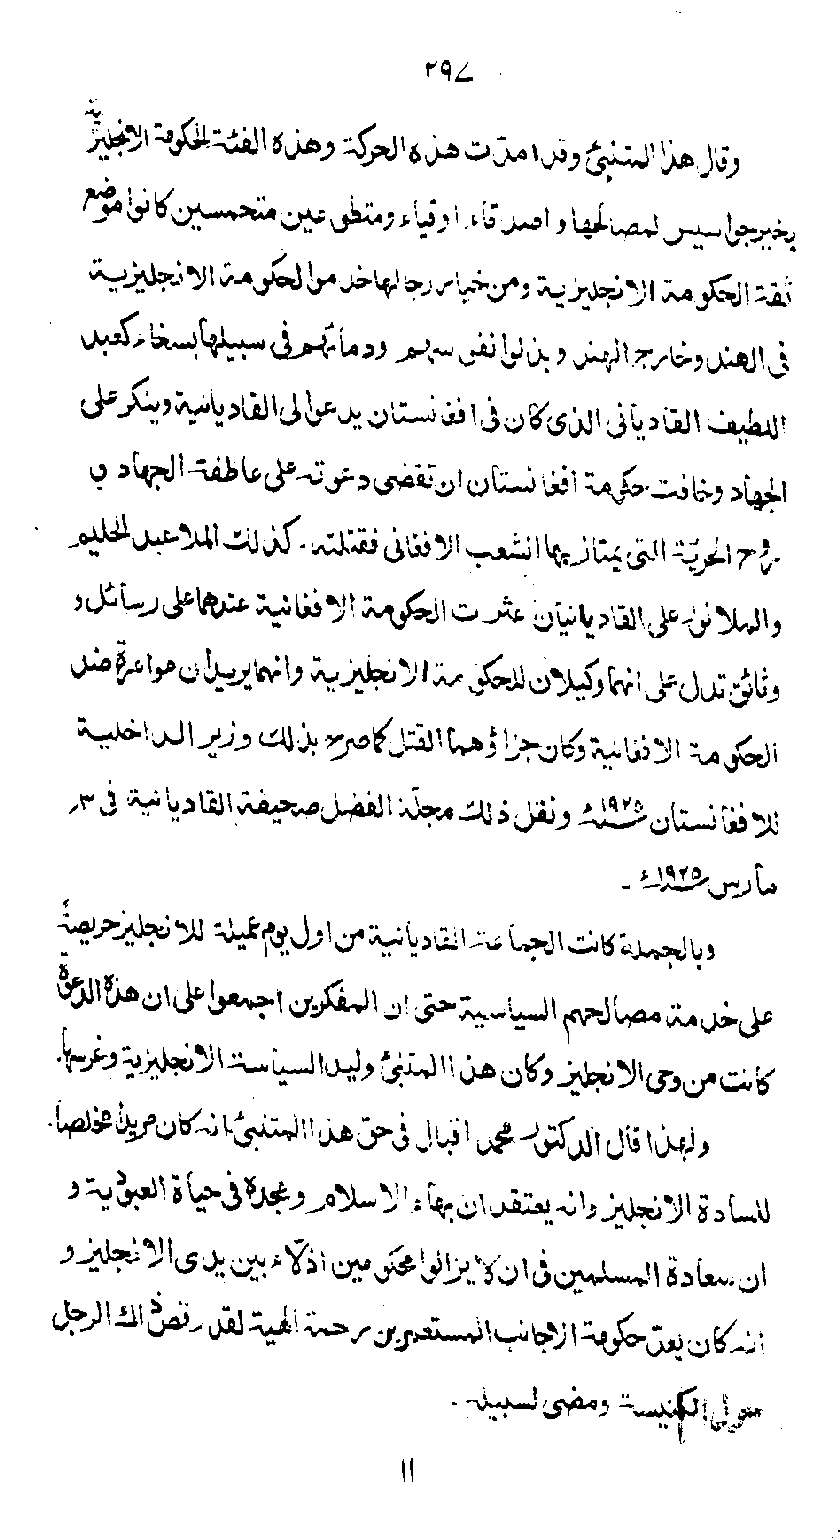 ٢٩٧
وقال هذا المتنبئ وقد امدت هذه الحركة وهذه الفئة الحكومة الانجليزية
بخير جواسيس لمصالحها واصدقاء اوفياء ومتطوعين متحمسين كانوا موضع
ثقة الحكومة الانجليزية ومن خيار رجالها خدموا الحكومة الانجليزية
فى الهند وخارج الهند وبذلوا نفوسهم ودمائهم فى سبيلها بسخاء كعبد
اللطيف القاديانى الذى كان فى افغانستان يدعو الى القاديانية وينكر على
الجهاد وخافت حكومة افغانستان ان تقضى دعوته على عاطفة الجهاد و
روح الحرية التى يمتاز بها الشعب الافغانى فقتلته. كذلك الملا عبد الحليم
والملا نور على القاديانيان عثرت الحكومة الافغانية عندهما على رسائل و
وثائق تدل على انهما وكيلان للحكومة الانجليزية وانهما يريدان مواعرة ضد
الحكومة الافغانية وكان جزاؤهما القتل كما صرح بذلك وزير الداخلية
للافغانستان ١٩٢٥ء ونقل ذلك مجلة الفضل صحيفة القاديانية فى ٣
مارس ١٩٢٥ء -
وبالجملة كانت الجماعة القاديانية من اول يوم عميلة للانجليز حريصة
على خدمة مصالحهم السياسية حتى ان المفكرين اجمعوا على ان هذه الدعوة
كانت من وحى الانجليز وكان هذا المتنبئ وليد السياسة الانجليزية وغرسها.
ولهذا قال الدكتور محمد اقبال فى حق هذا المتنبئ بانه كان مريدا مخلصا.
للسادة الانجليز وانه يعتقد ان بهاء الاسلام ومجده فى حياة العبودية و
ان سعادة المسلمين فى ان لا يزالوا محكومين اذلاء بين يدى الانجليز و
انه كان يعدّ حكومة الاجانب المستعمرين رحمة الهية لقد رقص ذالك الرجل
حوالى الكنيسة ومضى لسبيله -
١١